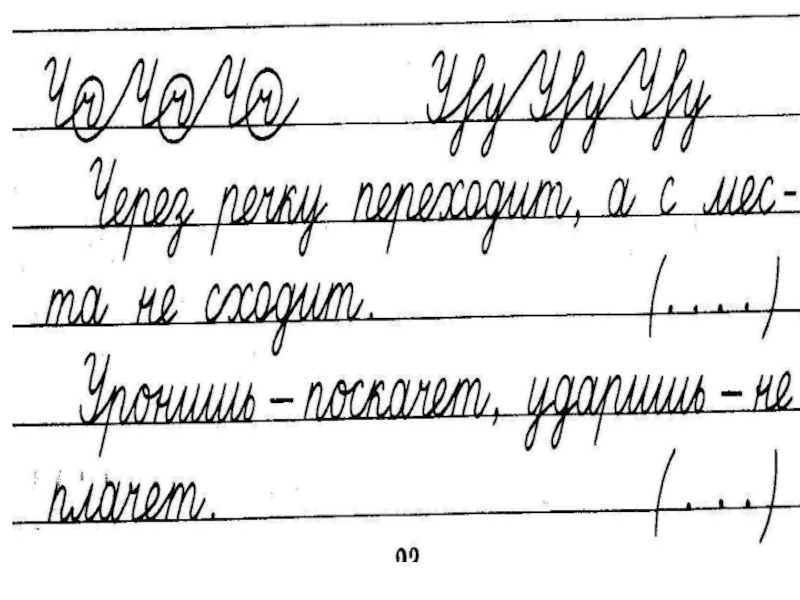 Чч Чч Чч Уу Уу Уу
Через речку переходит, а с мес-
та не сходит. (....)
Урониш­ь – поскачет, ударишь – не
плачет. (....)